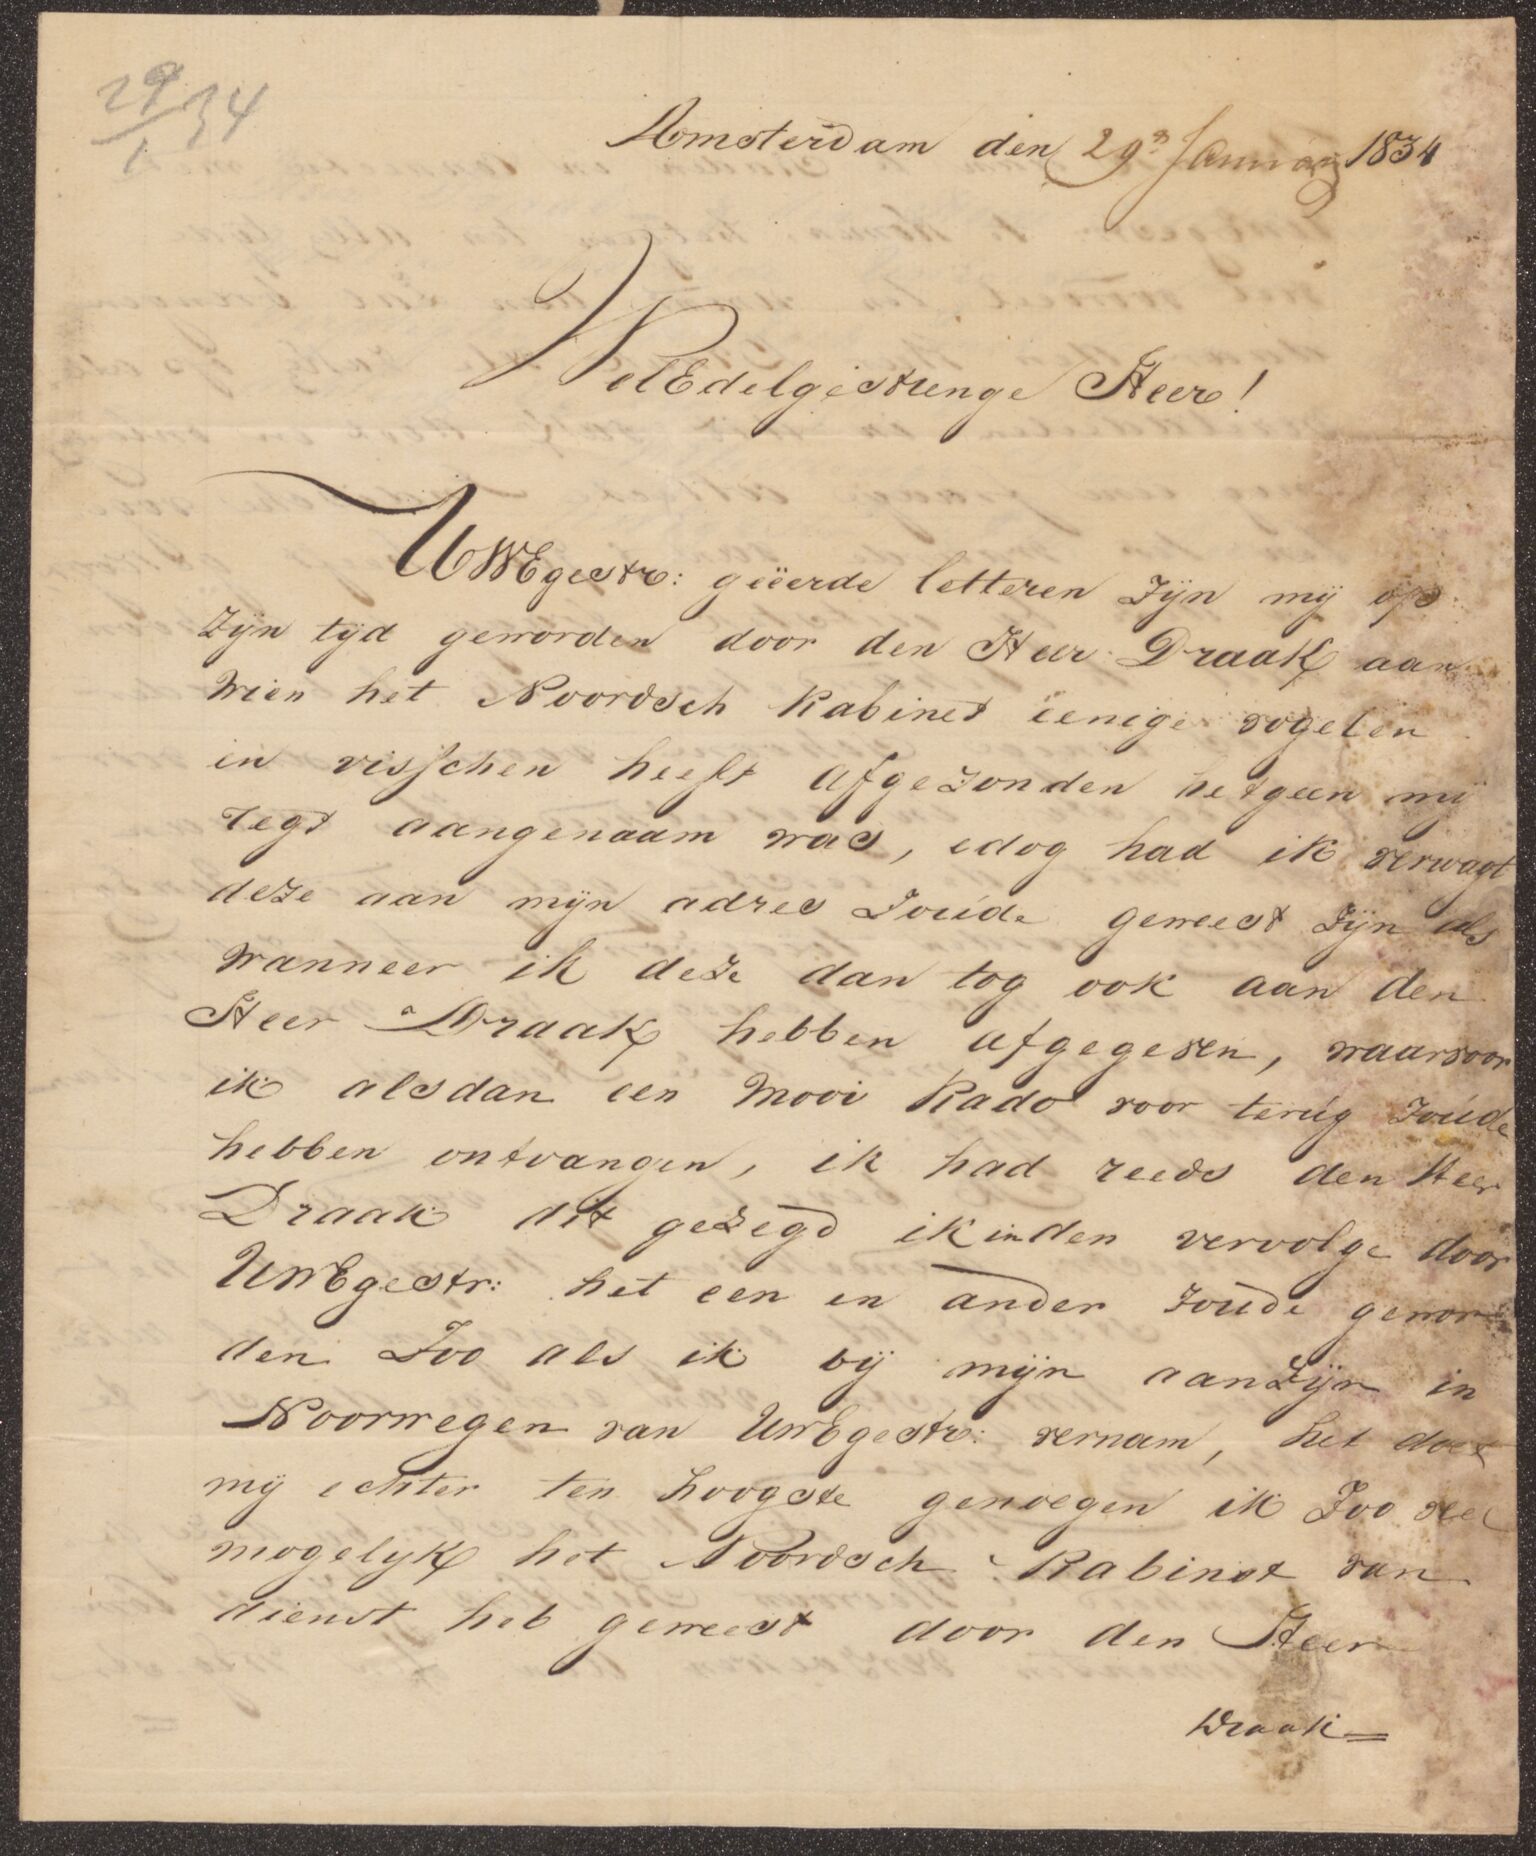 29/1 34
Amsterdam den 29n January 1834
WelEdelgestrenge Heer!
UWEgestr: geëerde letteren zÿn mÿ op
zÿn tÿd geworden door den Heer Draak aan
wien het Noordsch Kabinet eenige vogelen
en visschen heeft afgezonden hetgeen mÿ
regt aangenaam was, edog had ik verwagt
deze aan mÿn adres zoude geweest zÿn als
wanneer ik deze dan tog ook aan den
Heer Draak hebben afgegeven, waarvoor
ik alsdan een mooi Kado voor terúg zoúde
hebben ontvangen, ik had reeds den Heer
Draak dit gezegd ik in den vervolge door
UWEgestr: het een en ander zoude gewor
den Zoo als ik bÿ mÿn aanzÿn in
Noorwegen van UWEgestr: vernam, het doet
mÿ echter ten hoogste genoegen ik Zoo veel
mogelÿk het Noordsch Kabinet van
dienst heb geweest door den Heer
Draak=